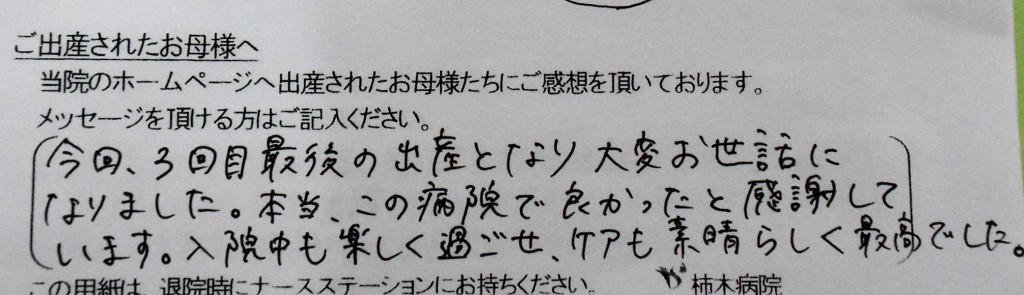 ご出産されたお母様へ
当院のホームページへ出産されたお母様たちにご感想を頂いております。
メッセージを頂ける方はご記入ください。
今回、3回目最後の出産となり大変お世話に
なりました。本当、この病院で良かったと感謝して
います。入院中も楽しく過ごせ、ケアも素晴らしく最高でした。
この用紙は、退院時にナースステーションにお持ちください。 柿木病院